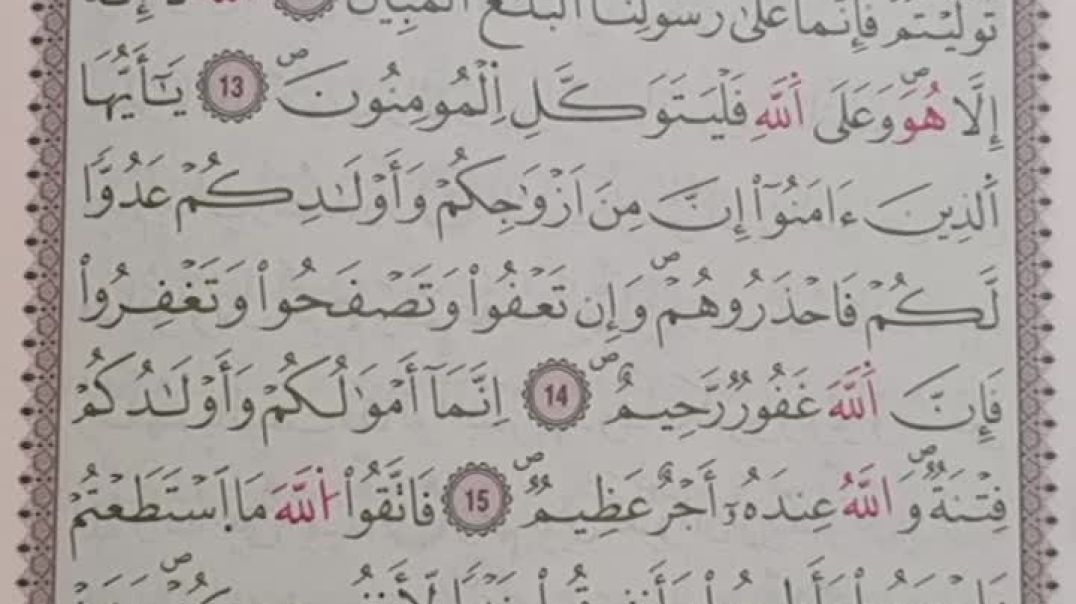 تَوَلَّيْتُمْ فَإِنَّمَا عَلَىٰ رَسُولِنَا اَ۬لْبَلَٰغُ اُ۬لْمُبِينُۖ
إِلَّا هُوَۖ وَعَلَى اَ۬للَّهِ فَلْيَتَوَكَّلِ اِ۬لْمُومِنُونَۖ 13 يَٰٓأَيُّهَا
اَ۬لذِينَ ءَامَنُوٓاْ إِنَّ مِنَ اَزْوَٰجِكُمْ وَأَوْلَٰدِكُمْ عَدُوّاٗ
لَّكُمْ فَاحْذَرُوهُمْۖ وَإِن تَعْفُواْ وَتَصْفَحُواْ وَتَغْفِرُواْ
فَإِنَّ اَ۬للَّهَ غَفُورٞ رَّحِيمٌۖ 14 اِنَّمَآ أَمْوَٰلُكُمْ وَأَوْلَٰدُكُمْ
فِتْنَةٞۖ وَاللَّهُ عِندَهُۥٓ أَجْرٌ عَظِيمٞۖ 15 فَاتَّقُواْ اُ۬للَّهَ مَا اَ۪سْتَطَعْتُمْ